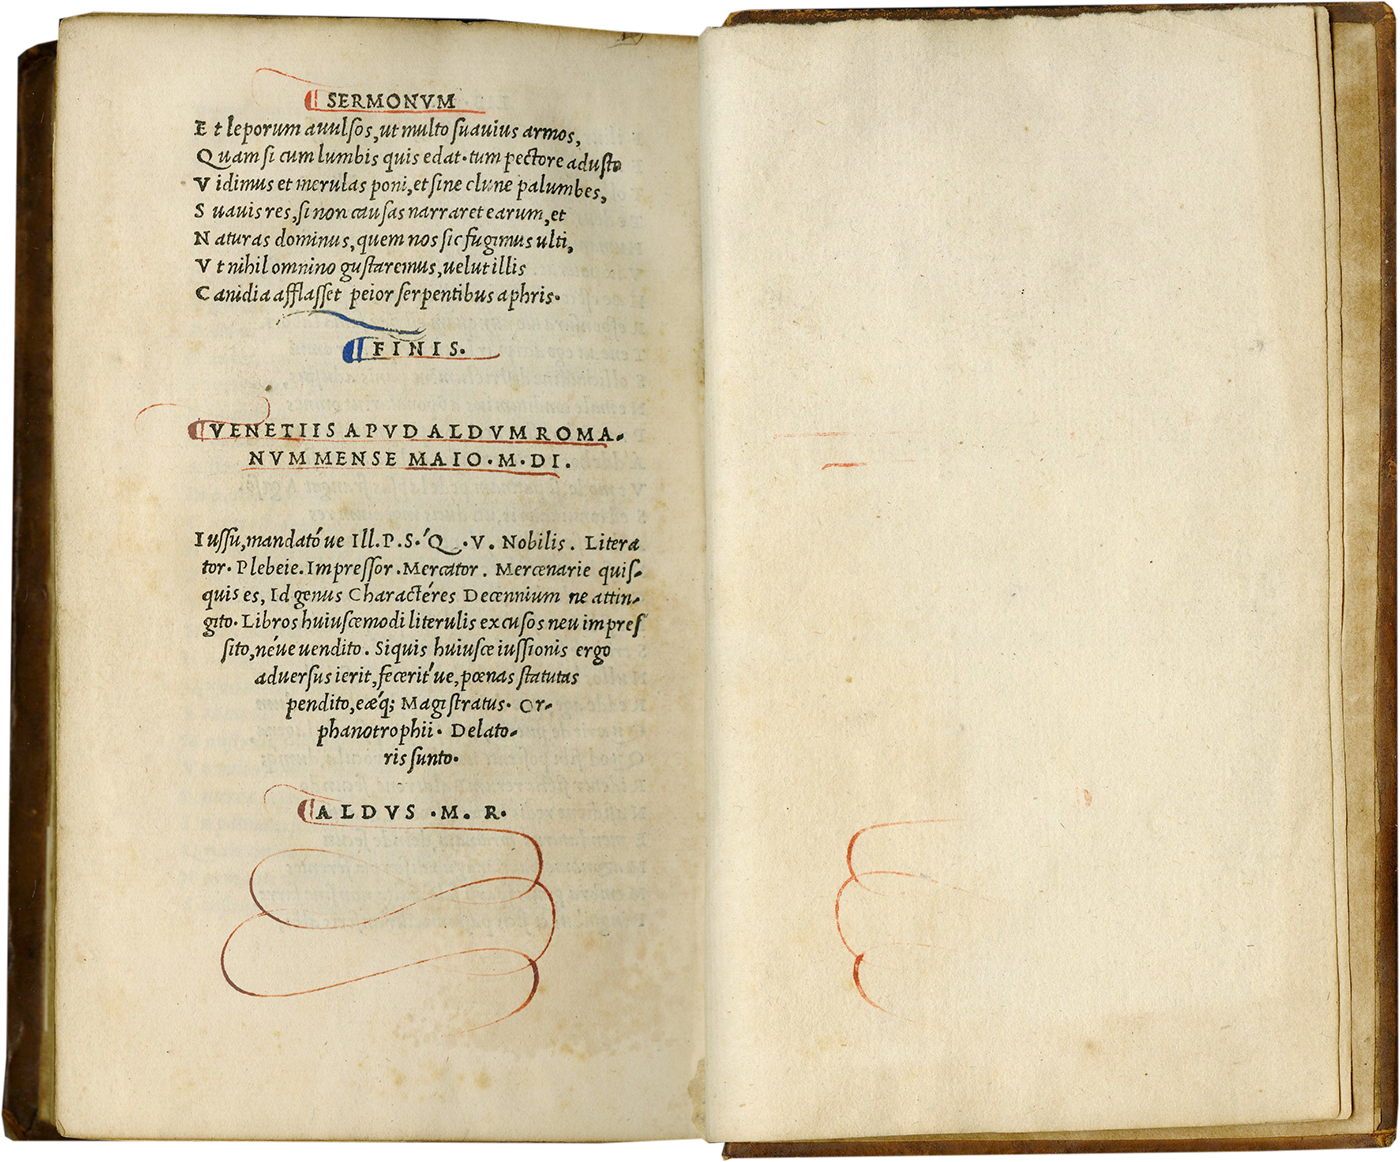 SERMONVM
E t leporum auulsos, ut multo suauius armos,
Q uam si cum lumbis quis edat. tum pectore adusto
V idimus et merulas poni, et sine clune palumbes,
S uauis res, si non causas narraret earum, et
N aturas dominus, quem nos sic fugimus ulti,
V t nihil omnino gustaremus, uelut illis
C anidia afflasset peior serpentibus aphris.
FINIS.
VENETIIS APVD ALDVM ROMA-
NVM MENSE MAIO. M. DI.
Iussu, mandató ue Ill. P. S. ́Q. V. Nobilis. Litera
tor. Plebeie. Impressor. Mercator. Mercenarie quis-
quis es, Id genus Charactéres Decennium ne attin-
gito. Libros huiuscemodi literulis excusos neu impres
sito, néue uendito. Siquis huiusce iussionis ergo
aduersus ierit, fecerit ́ue, pœnas statutas
pendito, eǽq; Magistratus. Or-
phanotrophii. Delato-
ris sunto.
ALDVS . M. R.